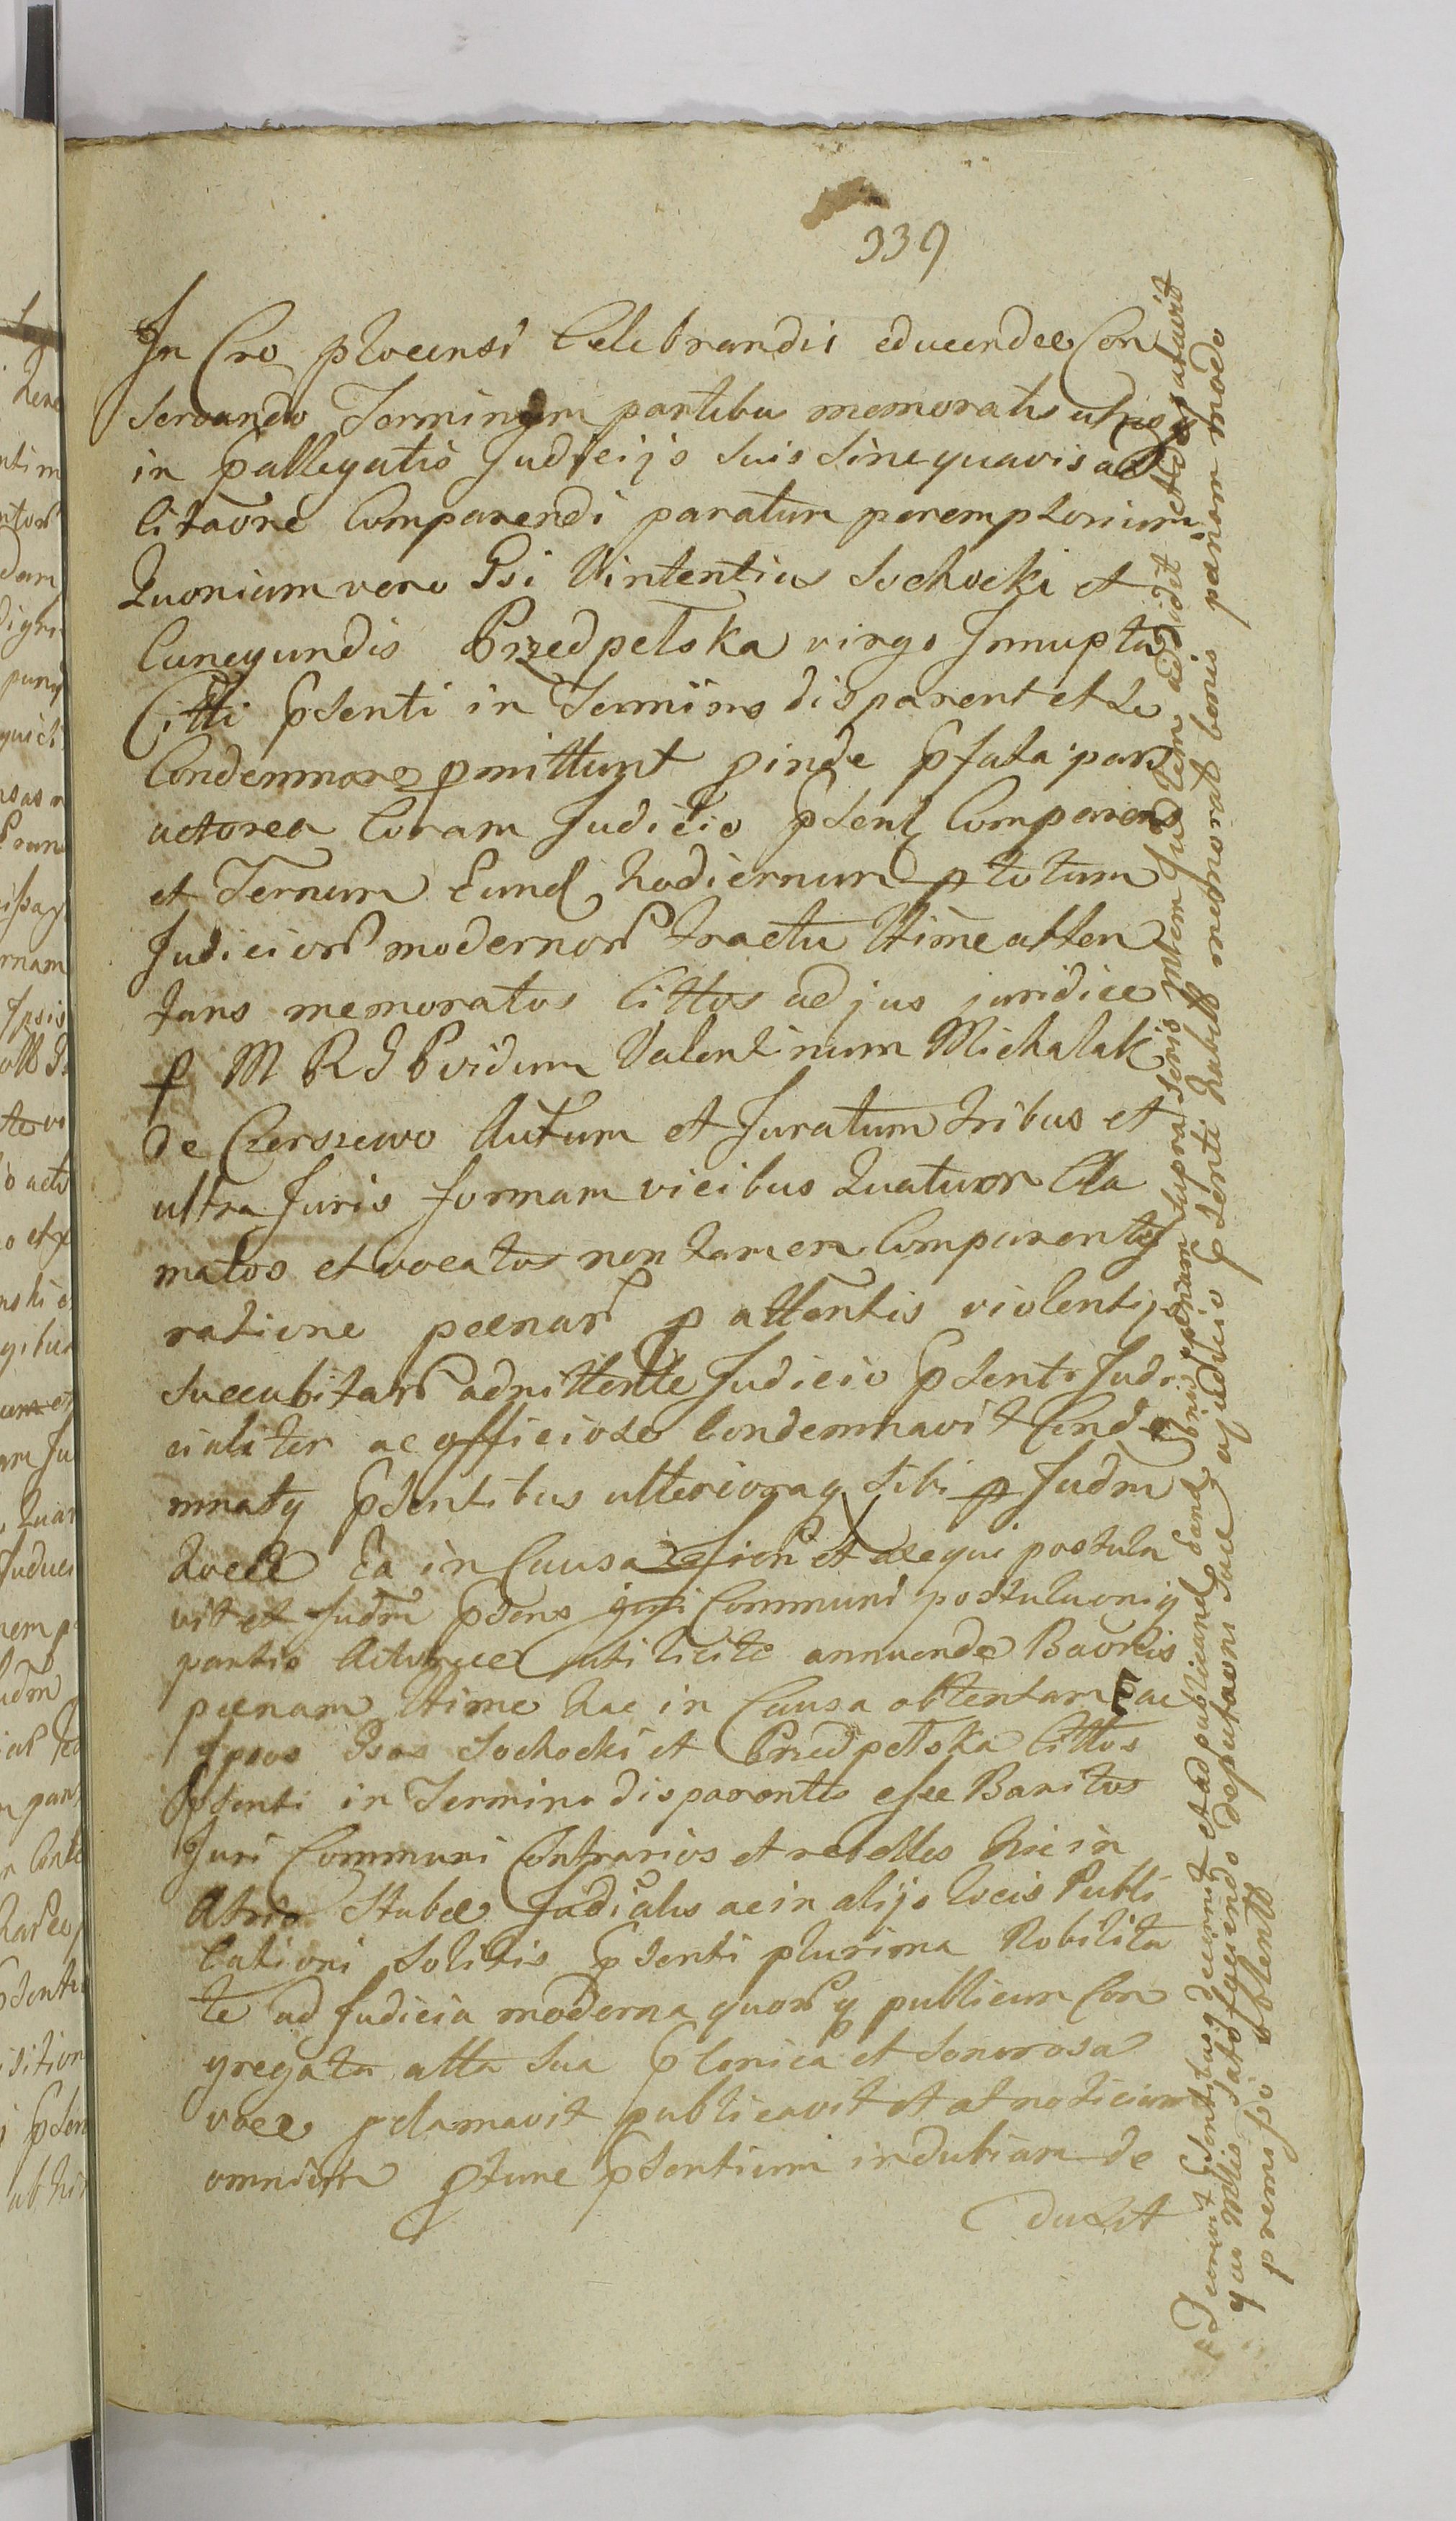 339
In Cro plocensi Celebrandis educendae Con
servando Terminum partibus memoratis utrisq
in pallegatis Judicijs suis sine quavis ad
citaone Comparendi paratum peremptorium
Quoniam vero Gsi Vintentius Sochocki et
Cunegundis Przedpelska virgo Innupta
Citti Psenti in Termino disparent et se
Condemnare pmittunt pinde Pfata pars
actorea Coram Judicio Psenti Comparens
et Ternum Eund hodiernum p totum
Judicior modernor tractu Ultime atten
tans memoratos Cittos ad jus juridice
p M R J Pvidum Valentinum Michalak
de Czerszewo Autum et Juratum tribus et
ultra Juris formam vicibus Quatuor Cla
matos et vocatos non tamen Comparentes
ratione paenar p attentis violentijs
succubitar admittente Judicio Psenti Judi
cialiter ac officiose Condemnavit Conde
mnatq Psentibus ulterioraq sibi p Judm
hocce Ea in Causa et aequi postula
vit et Judm Psens juri Communi postulaoniq
partis Actoreae uti licite annuendo Baonis
paenam Ultime hac in Causa obtentam ac
Ipsos Gsos Sochocki et Przedpelska Cittos
Psenti in Termino disparentes esse Banitos
Juri Communi Contrarios et rebelles hic in
Atrio Stubae Judialis ac in alijs locis Publi
cationi Solitis Psenti plurima Nobilita
te ad Judicia moderna quorq publicum Con
gregata alta sua Plonica et sonorosa
voce pclamavit publicavit et at noticiam
omnium ptunc Psentium indubiam de
duxit
Decrevit Psentibusq decernit et ad publicand dand paenam supra Scris Intem Judtem addidit et deputavit
qui Mltis satisfaciendo deputaoni suae ac judicio Psenti habitt memorat bonis paenam modo
premisso obtentt